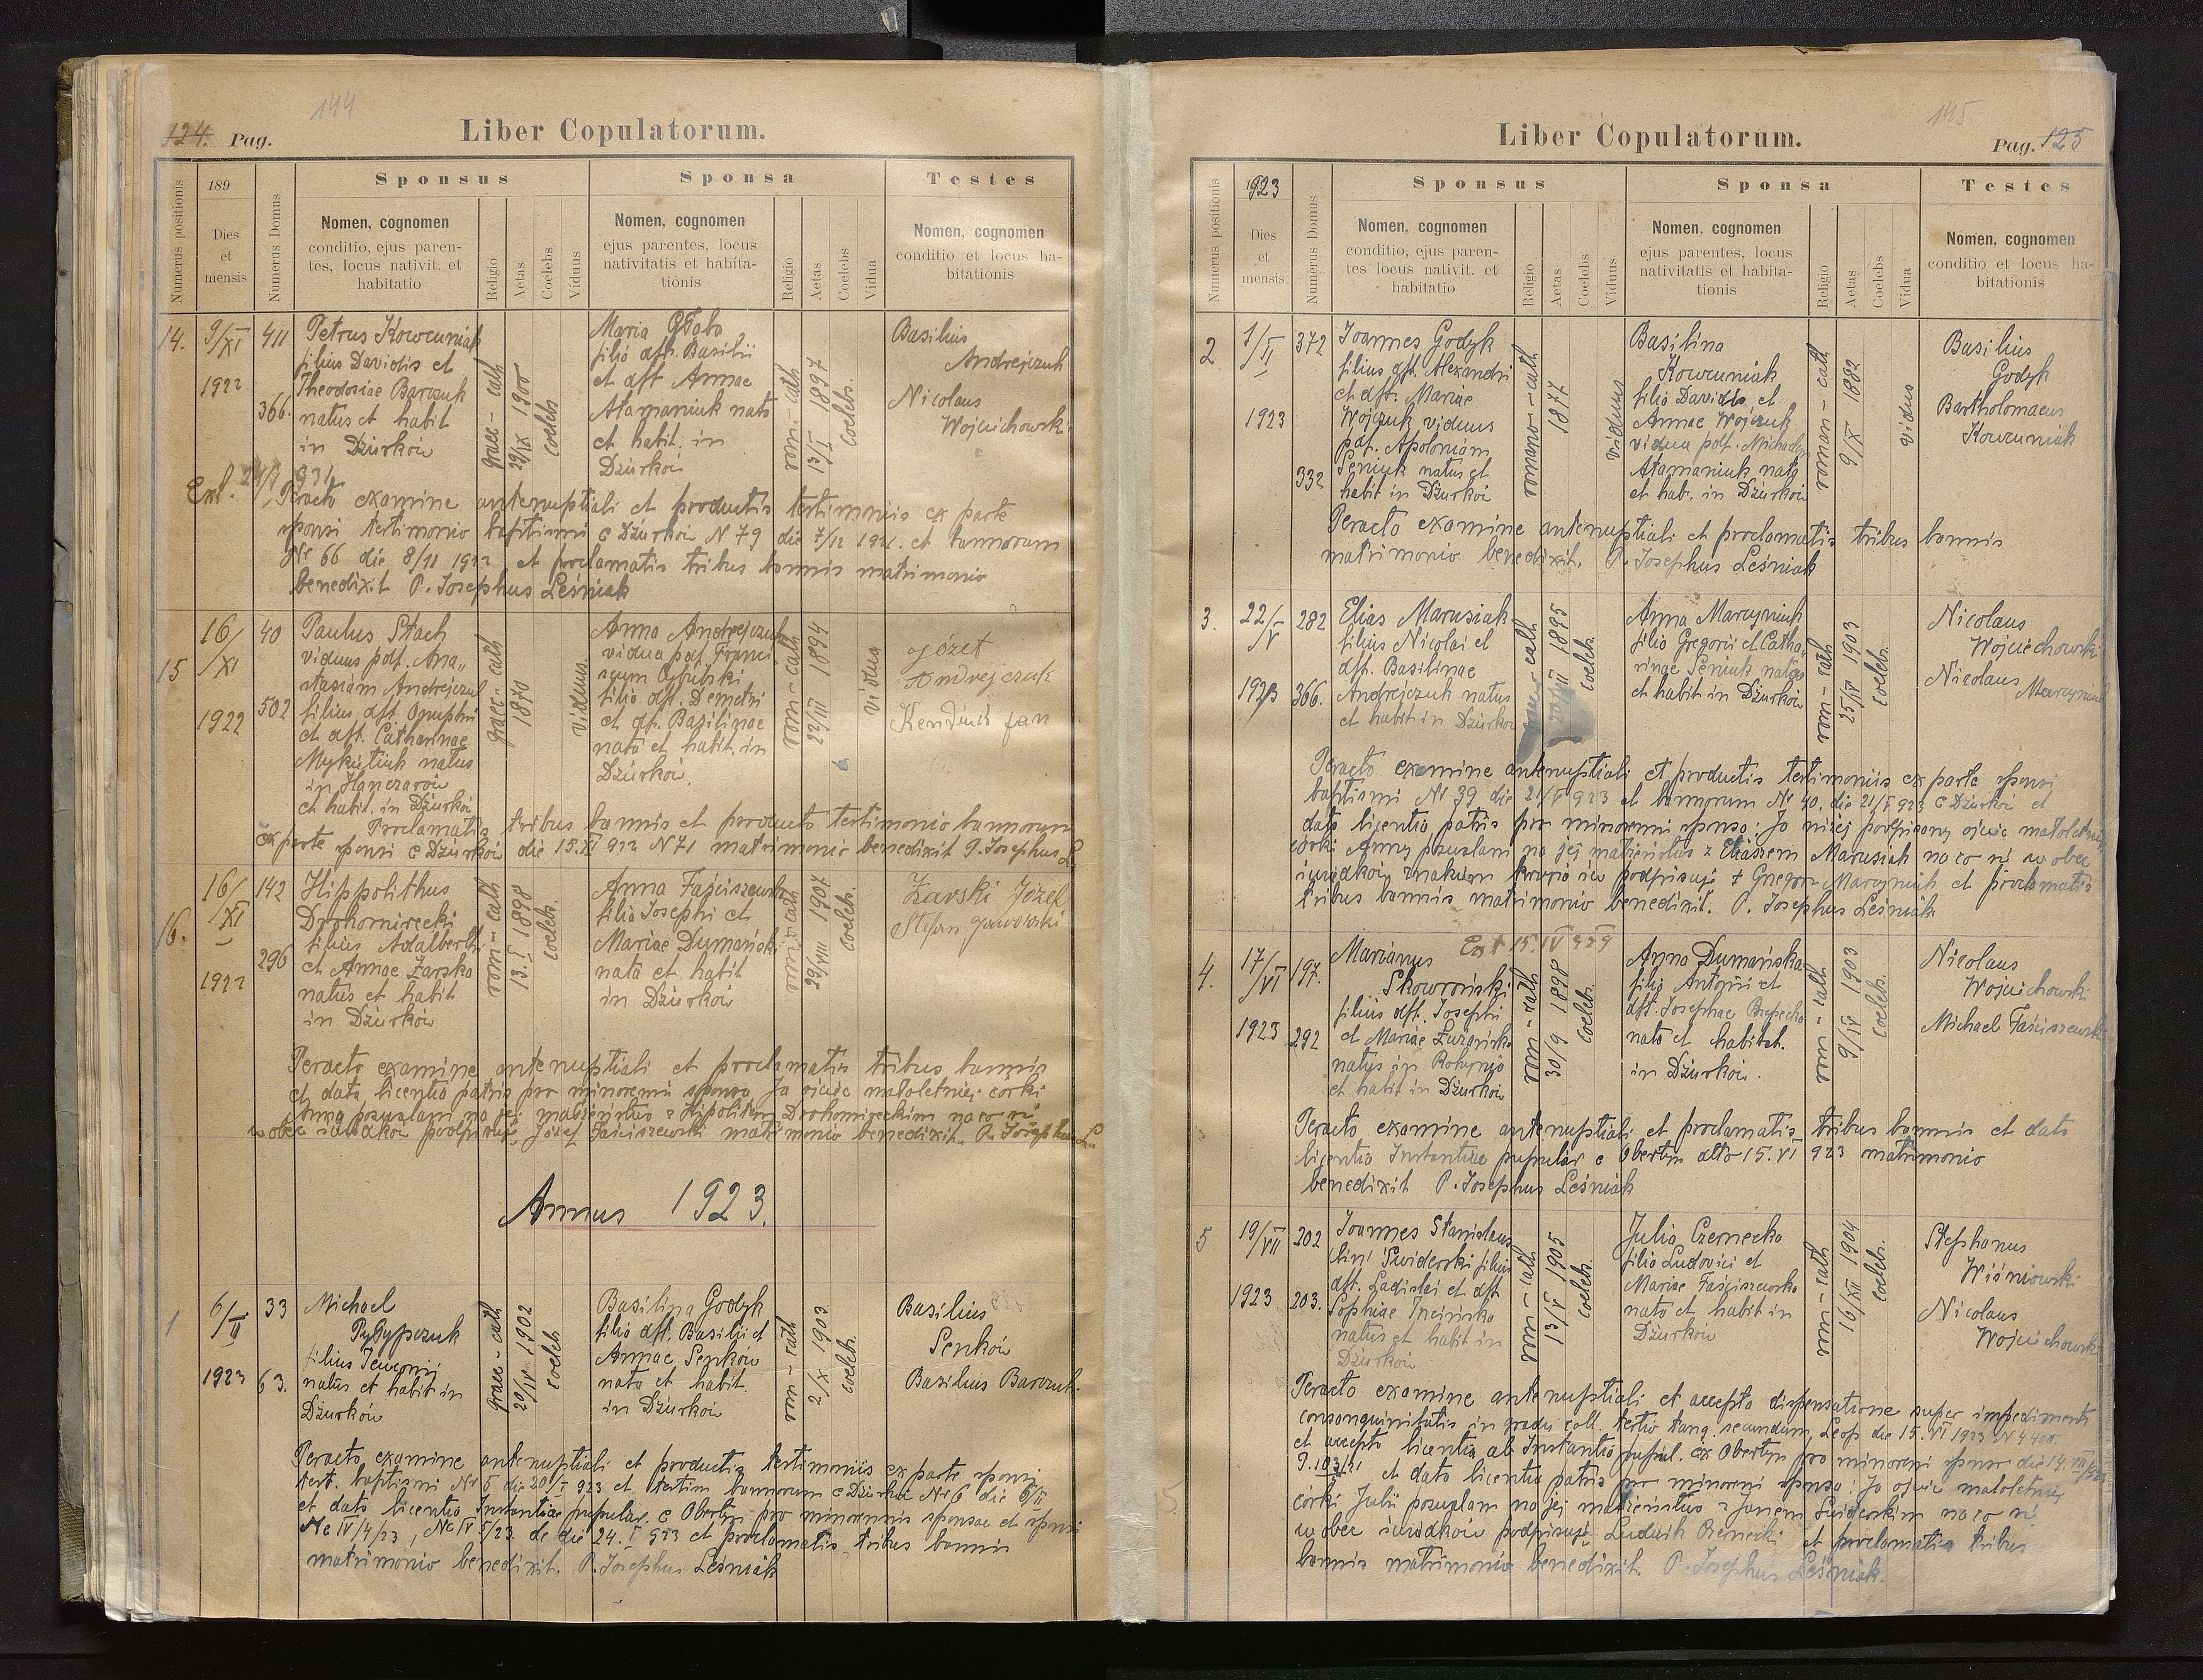 144
124. Pag.
Liber Copulatorum.
Numerus positionis
189
Dies
et
mensis
Numerus Domus
Sponsus
Nomen, cognomen
conditio, ejus paren-
tes, locus nativit. et
habitatio
Religio
Aetas
Coelebs
Viduus
Sponsa
Nomen, cognomen
ejus parentes, locus
nativitatis et habita-
tionis
Religio
Aetas
Coelebs
Vidua
Testes
Nomen, cognomen
conditio et locus ha-
bitationis
14.
9/XI
1922
411
366.
Petrus Kowcuniak
filius Davidis et
Theodosiae Barczuk
natus et habit
in Dżurków
graec-cath
29/IX 1900
coelebs
Maria
filia dft. Basilii
et dft Annae
Atamaniuk nata
et habit. in
Dżurków
rom.-cath
1897
coelebs.
Basilius
Andrejczuk
Nicolaus
Wojciechowski
Peracto examine antenuptiali et productis testimoniis ex parte
sponsi testimonio baptismi e Dżurków N 79 die 7/12 1921. et bannorum
Nr 66 die 8/11 1922 et proclamatis tribus bannis matrimonio
benedixit P. Josephus Leśniak
15
16/XI
1922
40
502
Paulus Stach
viduus pdf. Ana„
stasiam Andrejczuk
filius dft. Onuphri
et dft. Catharinae
Mykitiuk natus
in Hanczarów
et habit. in Dżurków
graec-cath
1870
viduus.
Anna Andrejczuk
vidua pdf. Franci
scum
filia dft. Demetri
et dft. Basilinae
nata et habit in
Dżurków.
rom-cath
23/III 1894
vidua
Józef
Andrejczuk
Jan
Proclamatis tribus bannis et producto testimonio bannorum
ex parte sponsi e Dżurków die 15.XI 922 N 71 matrimonio benedixit P. Josephus L
16.
16/XI
1922
142
296
Hippolithus
Drohomirecki
filius Adalberti
et Annae Żarska
natus et habit
in Dżurków
rom-cath
13.I 1898
coelebs.
Anna Faściszewska
filia Josephi et
Mariae Dumańska
nata et habit
in Dżurków
rom-cath
29/VIII 1907
coelebs.
Żarski Józef
Stefan
Peracto examine antenuptiali et proclamatis tribus bannis
et data licentia patris pro minorenni sponsa Ja ojciec małoletniej córki
Anny pozwalam na jej małżeństwo z Hipolitem Drohomireckim na co się
wobec świadków podpisuję Józef Faściszewski matrimonio benedixit P. Josephus
Annus 1923.
1
6/II
1923
33
63.
Michael
Pyłypczuk
filius
natus et habit in
Dżurków
graec-cath
20/IV 1902
coeleb
Basilina Godyk
filia dft. Basilii et
Annae Senków
nata et habit.
in Dżurków
rom-cath
2/X 1903
coeleb.
Basilius
Senków
Basilius Barczuk.
Peracto examine antenuptiali et productis testimoniis ex parte sponsi
test. baptismi Nr 5 die 20/I 923 et testim bannorum e Dżurków Nr 6 die 6/II
et data licentia Instantiae pupular. e Obertyn pro minorennis sponsae et sponsi
Nc IV/4/23, Nc IV 5/23 de die 24. I 923 et proclamatis tribus bannis
matrimonio benedixit. P. Josephus Leśniak
145
Liber Copulatorum.
Pag. 125
Numerus positionis
1923
Dies
et
mensis
Numerus Domus
Sponsus
Nomen, cognomen
conditio, ejus paren-
tes locus nativit. et
habitatio
Religio
Aetas
Coelebs
Viduus
Sponsa
Nomen, cognomen
ejus parentes, locus
nativitatis et habita-
tionis
Religio
Aetas
Coelebs
Vidua
Testes
Nomen, cognomen
conditio et locus ha-
bitationis
2
1/II
1923
372
332
Joannes Godyk
filius dft. Alexandri
et dft. Mariae
Wojczuk, viduus
pdf. Apoloniam
Seniuk natus et
habit in Dżurków
romano-cath
1877
viduus
Basilina
Kowcuniak
filia Davidis et
Annae Wojczuk
vidua pdf. Michaelem
Atamaniuk nata
et hab. in Dżurków
roman-cath
9/X 1882
vidua
Basilius
Godyk
Bartholomaeus
Kowcuniak
Peracto examine antenuptiali et proclamatis tribus bannis
matrimonio benedixit. P. Josephus Leśniak
3.
22/V
1923
282
366.
Elias Marusiak
filius Nicolai et
dft. Basilinae
Andrejczuk natus
et habit in Dżurków
cath
1895
coeleb.
Anna Marcyniuk
filia Gregorii et Catha
rinae Seniuk nata
et habit in Dżurków
rom-cath
25/IV 1903
coeleb.
Nicolaus
Wojciechowski
Nicolaus
Marcyniuk
Peracto examine antenuptiali et productis testimoniis ex parte sponsi
baptismi Nr 39 die 21/V 923 et bannorum Nr 40. die 21/V 923 e Dżurków et
data licentia patris pro minorenni sponsa: Ja niżej podpisany ojciec małoletniej
córki Anny pozwalam na jej małżeństwo z Eliaszem Marusiak na co się wobec
świadków znakiem krzyża św podpisuję + Gregor Marcyniuk et proclamatis
tribus bannis matrimonio benedixit. P. Josephus Leśniak
4.
17/VI
1923
197.
292
Ext 15.IV 939
Marianus
Skowroński
filius dft. Josephi
et Mariae
natus in
et habit in Dżurków
rom-cath
30/9 1898
coeleb.
Anna Dumańska
filia Antonii et
dft. Josephae
nata et habitat.
in Dżurków.
rom-cath
9/IV 1903
coeleb.
Nicolaus
Wojciechowski
Michael Faściszewski
Peracto examine antenuptiali et proclamatis tribus bannis et data
licentia Instantiae pupular e Obertyn dtto 15. VI 923 matrimonio
benedixit P. Josephus Leśniak
5
19/VII
1923
202
203.
Joannes Stanislaus
(bin) Świderski filius
dft. Ladislai et dft
Sophiae
natus et habit in
Dżurków
rom-cath
13/V 1905
coeleb.
Julia Czernecka
filia Ludovici et
Mariae Faściszewska
nata et habit in
Dżurków
rom-cath
16/XII 1904
coeleb.
Stephanus
Wiśniowski
Nicolaus
Wojciechowski
Peracto examine antenuptiali et accepta dispensatione super impedimenti
consanguinitatis in gradu coll. tertio tang. secundum, Leop die 15. VI 1923 N
et accepta licentia ab Instantia pupul. ex Obertyn pro minorenni sponso die 14. VII/923
et data licentia patris pro minorenni sponsa: Ja ojciec małoletniej
córki Julii pozwalam na jej małżeństwo z Janem Świderskim na co się
wobec świadków podpisuję Ludwik Czernecki et proclamatis tribus
bannis matrimonio benedixit. P. Josephus Leśniak.